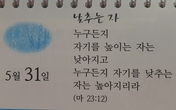 낮추는 자
누구든지
자기를 높이는 자는
낮아지고
누구든지 자기를 낮추는
자는 높아지리라
(마 23:12)
5월 31일